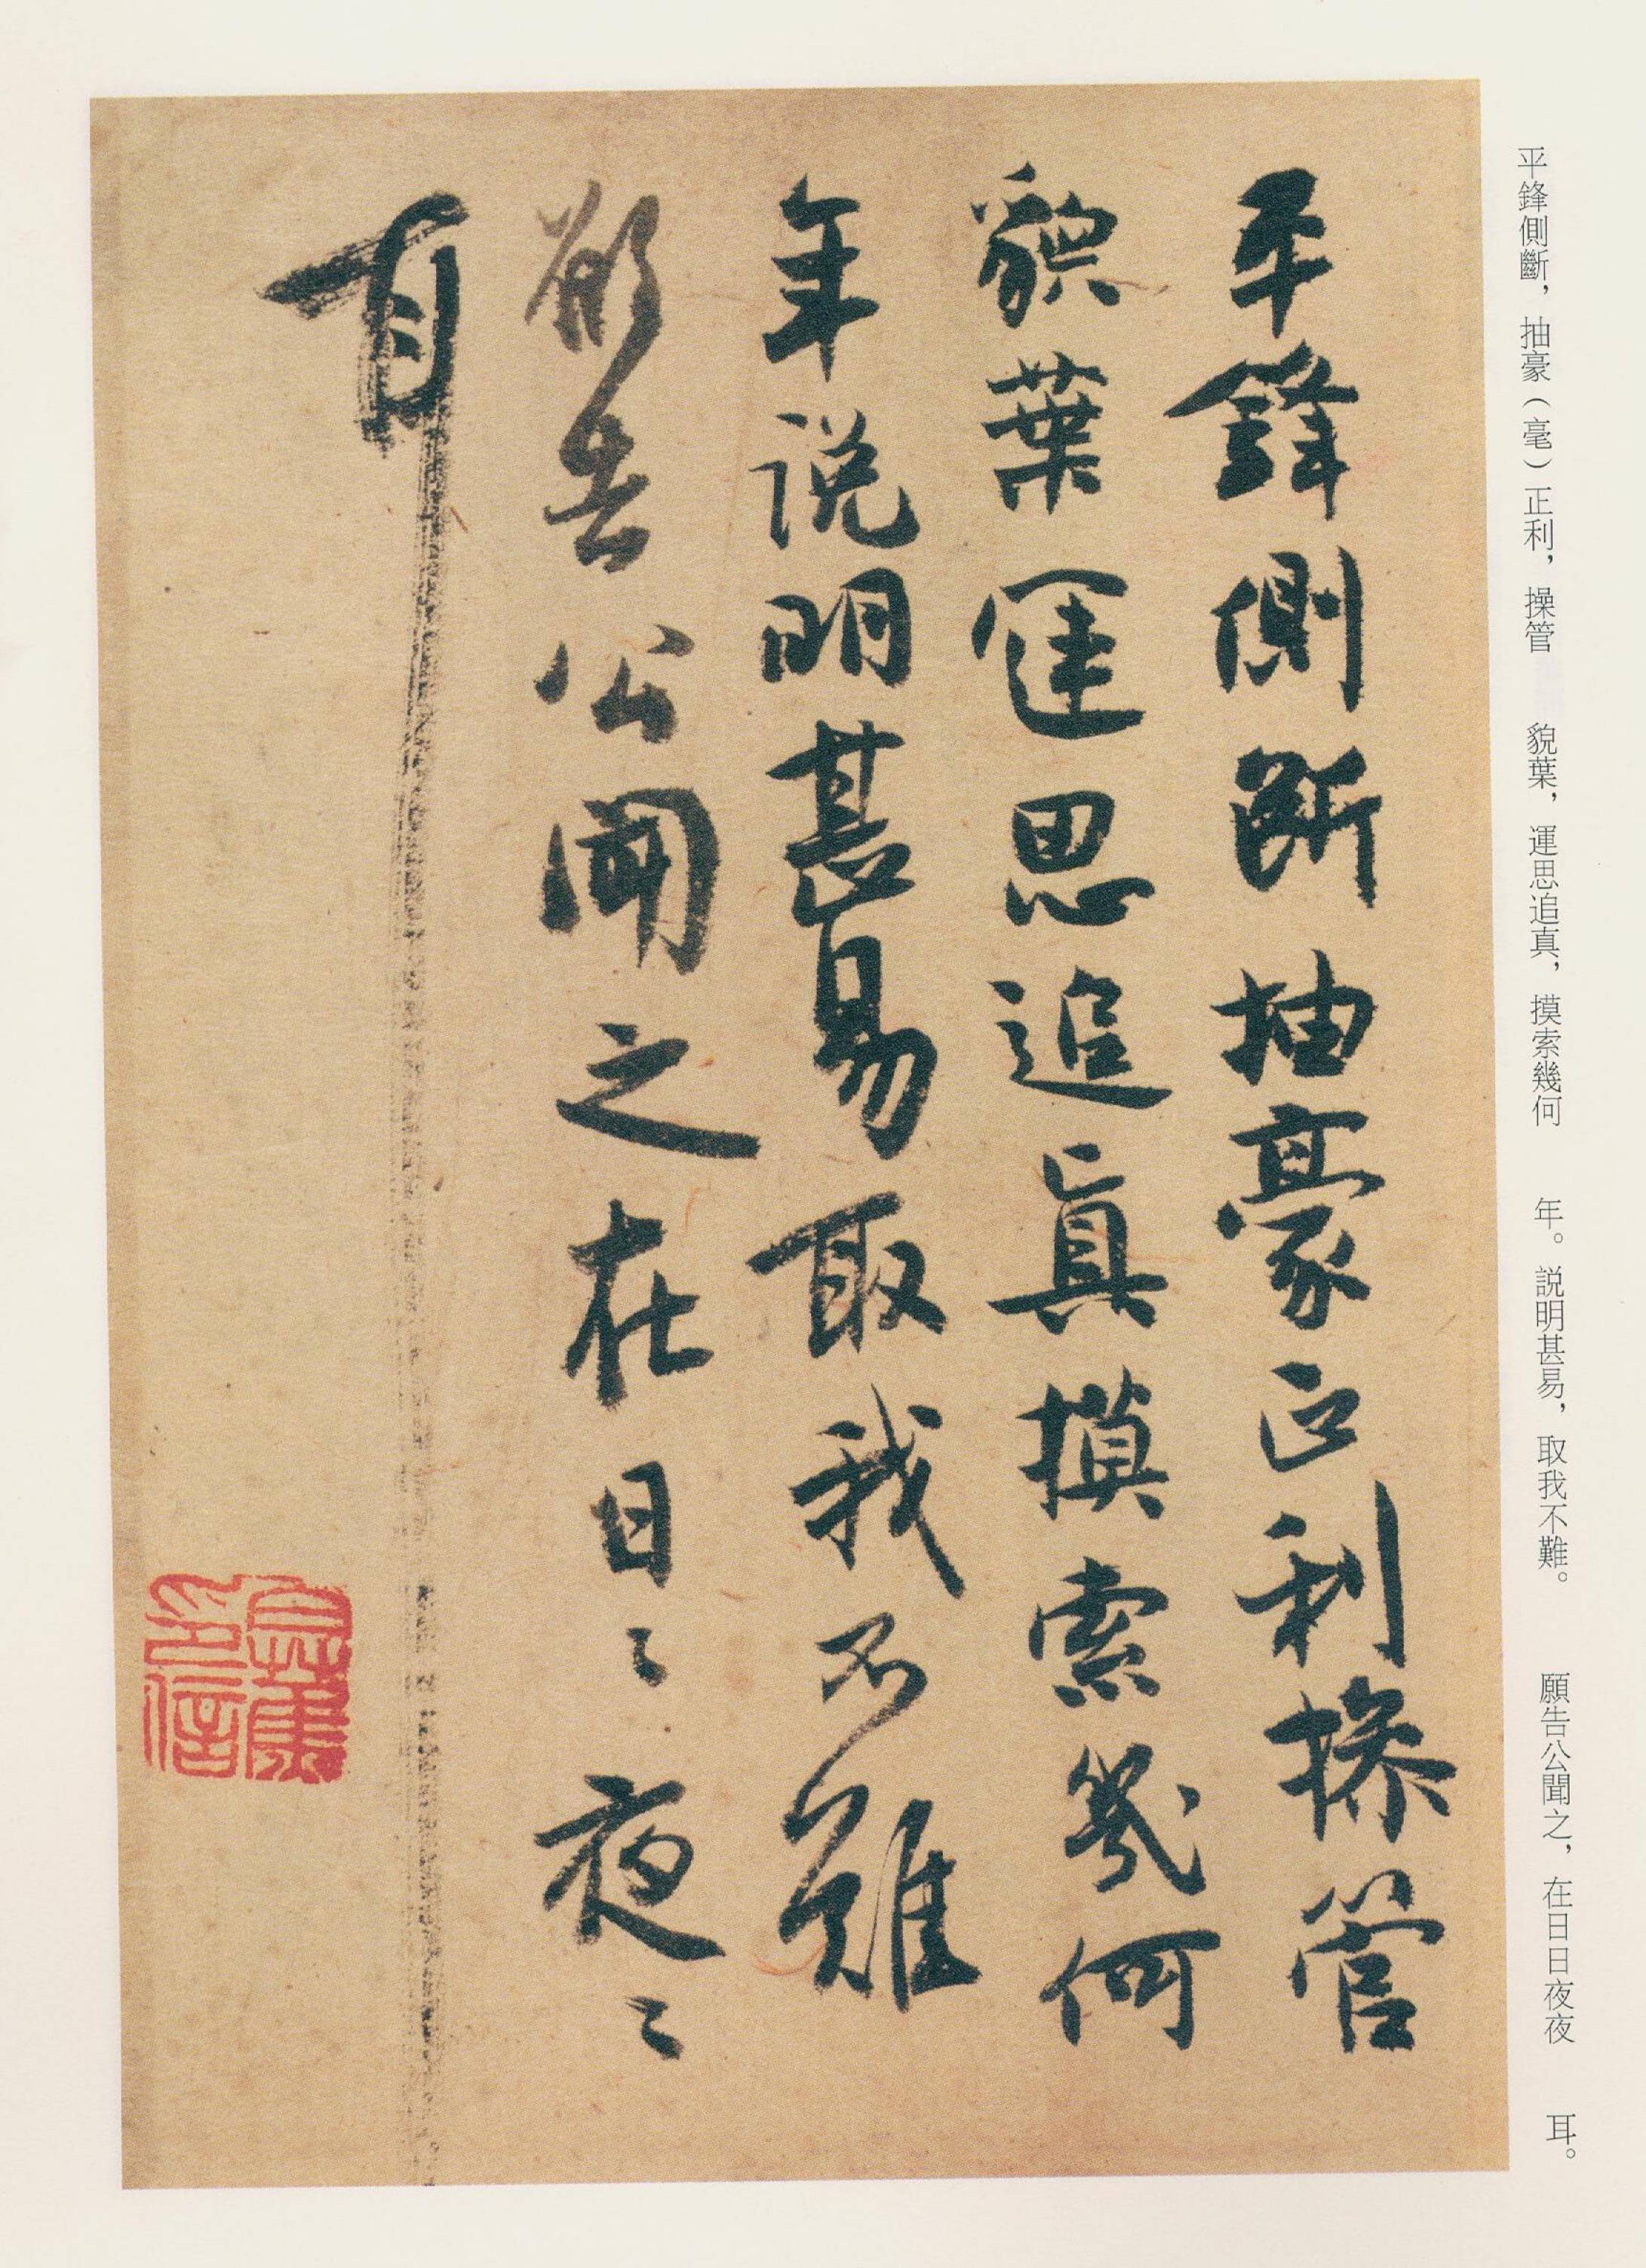 平鋒側斷，抽豪（毫）正利，操管　貌葉，運思追真，摸索幾何　年。説明甚易，取我不難。　願告公聞之，在日日夜夜　耳。
平鋒側斷抽豪正利操管
貌葉運思追真摸索幾何
年说明甚易取我不難
願告公聞之在日〻夜〻
耳